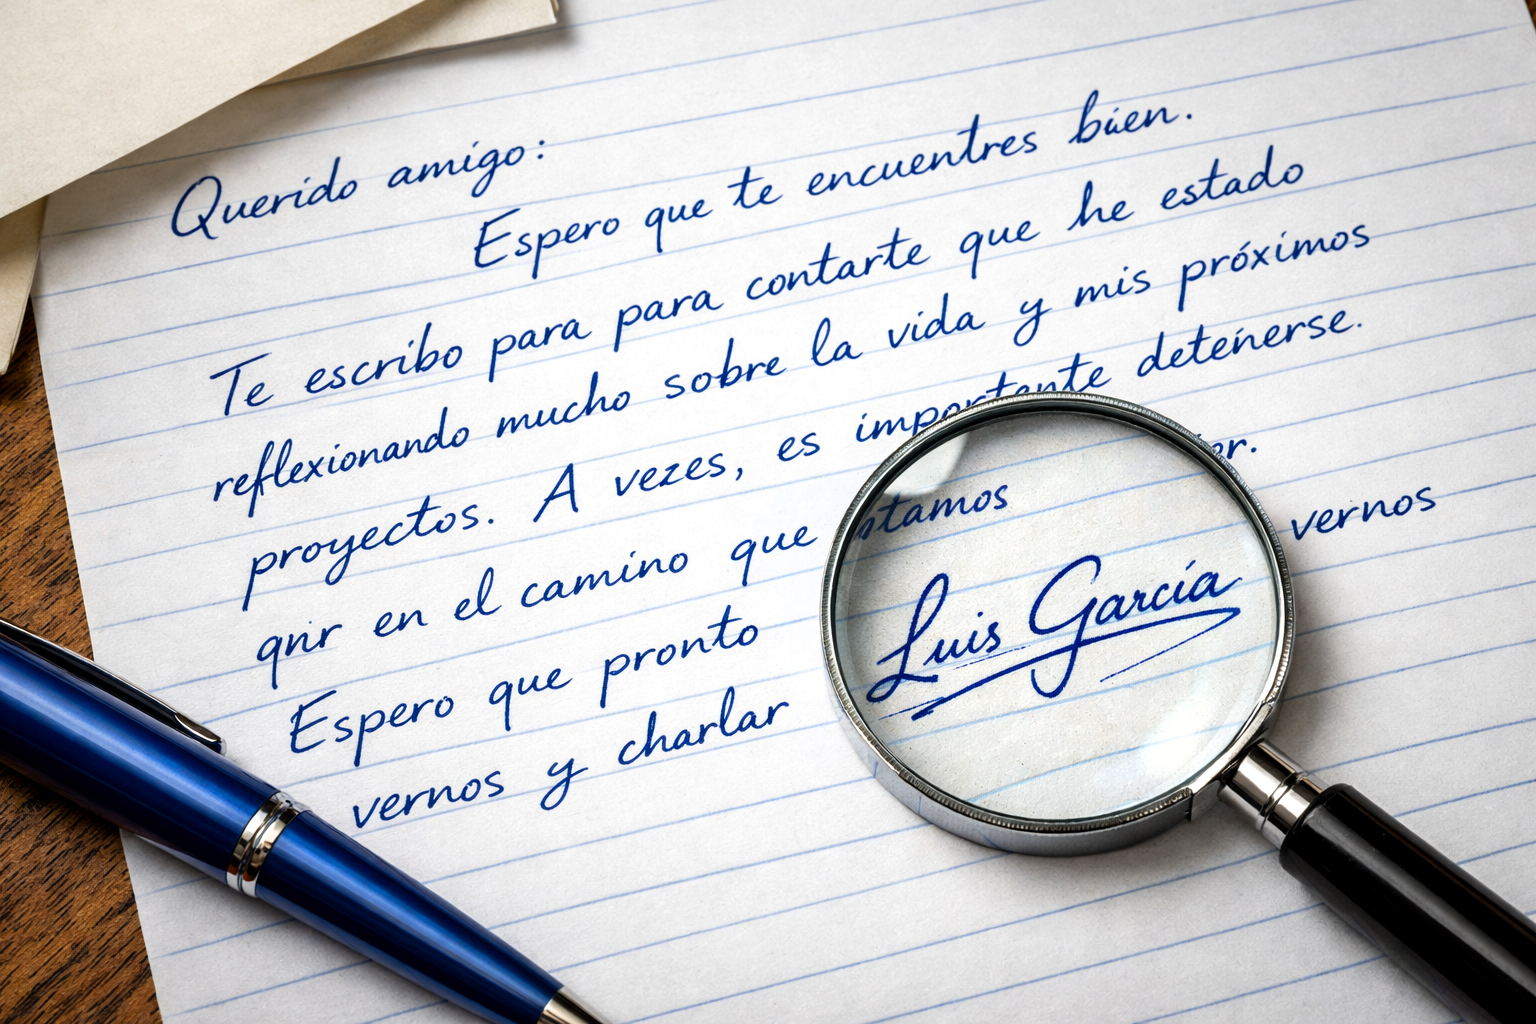 Querido amigo:
Espero que te encuentres bien.
Te escribo para para contarte que he estado
reflexionando mucho sobre la vida y mis próximos
proyectos. A vezes, es importante detenerse.
qnir en el camino que stamos
Espero que pronto vernos
vernos y charlar
Luis García